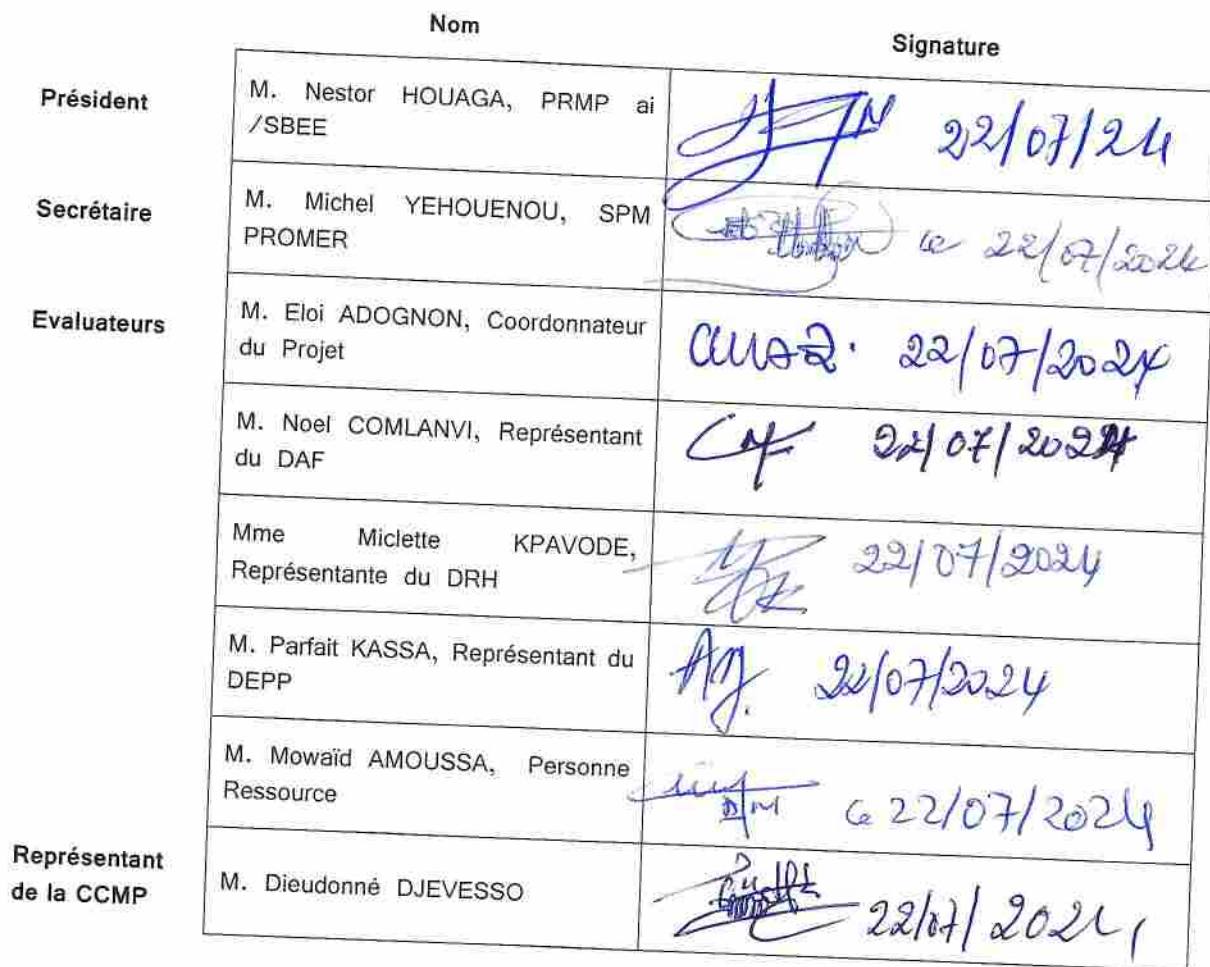 Nom
Signature
Président
M. Nestor HOUAGA, PRMP ai
/SBEE
22/07/24
Secrétaire
M. Michel YEHOUENOU, SPM
PROMER
le 22/07/2024
Evaluateurs
M. Eloi ADOGNON, Coordonnateur
du Projet
22/07/2024
M. Noel COMLANVI, Représentant
du DAF
22/07/2024
Mme Miclette KPAVODE,
Représentante du DRH
22/07/2024
M. Parfait KASSA, Représentant du
DEPP
22/07/2024
M. Mowaïd AMOUSSA, Personne
Ressource
le 22/07/2024
Représentant
de la CCMP
M. Dieudonné DJEVESSO
22/07/2024